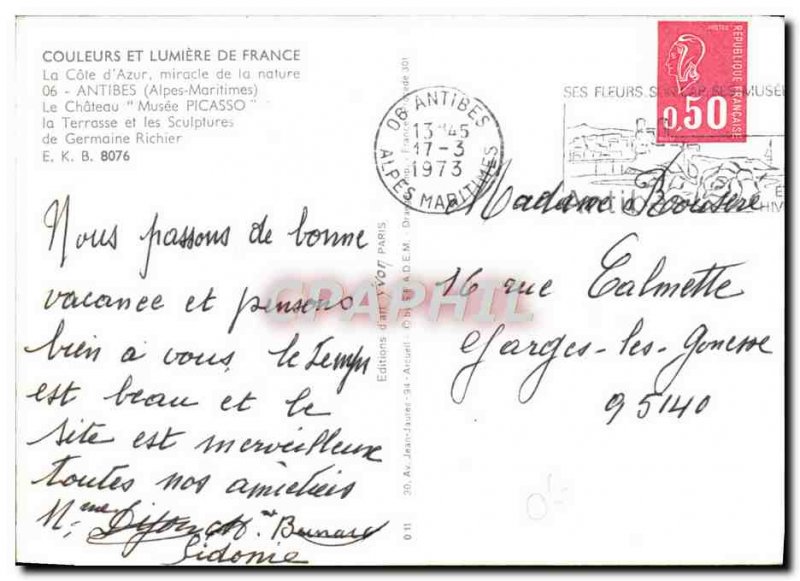 COULEURS ET LUMIÈRE DE FRANCE
La Côte d'Azur, miracle de la nature
06 - ANTIBES (Alpes-Maritimes)
Le Château "Musée PICASSO"
la Terrasse et les Sculptures
de Germaine Richier
E. K. B. 8076
Nous passons de bonne
vacance et pensons
bien à vous, le temps
est beau et le
site est merveilleux
toutes nos amictieis
Mme
Sidonie
Editions d'art Yvon PARIS
30, Av. Jean-Jaurès - 94 - Arcueil
D 11
06 ANTIBES
13 45
17-3
1973
ALPES MARITIMES
SES FLEURS SON CAP SES MUSÉE
POSTES
RÉPUBLIQUE FRANÇAISE
0,50
Madame
16 rue Calmette
Garges-les-Gonesse
95140
CPAPHIL